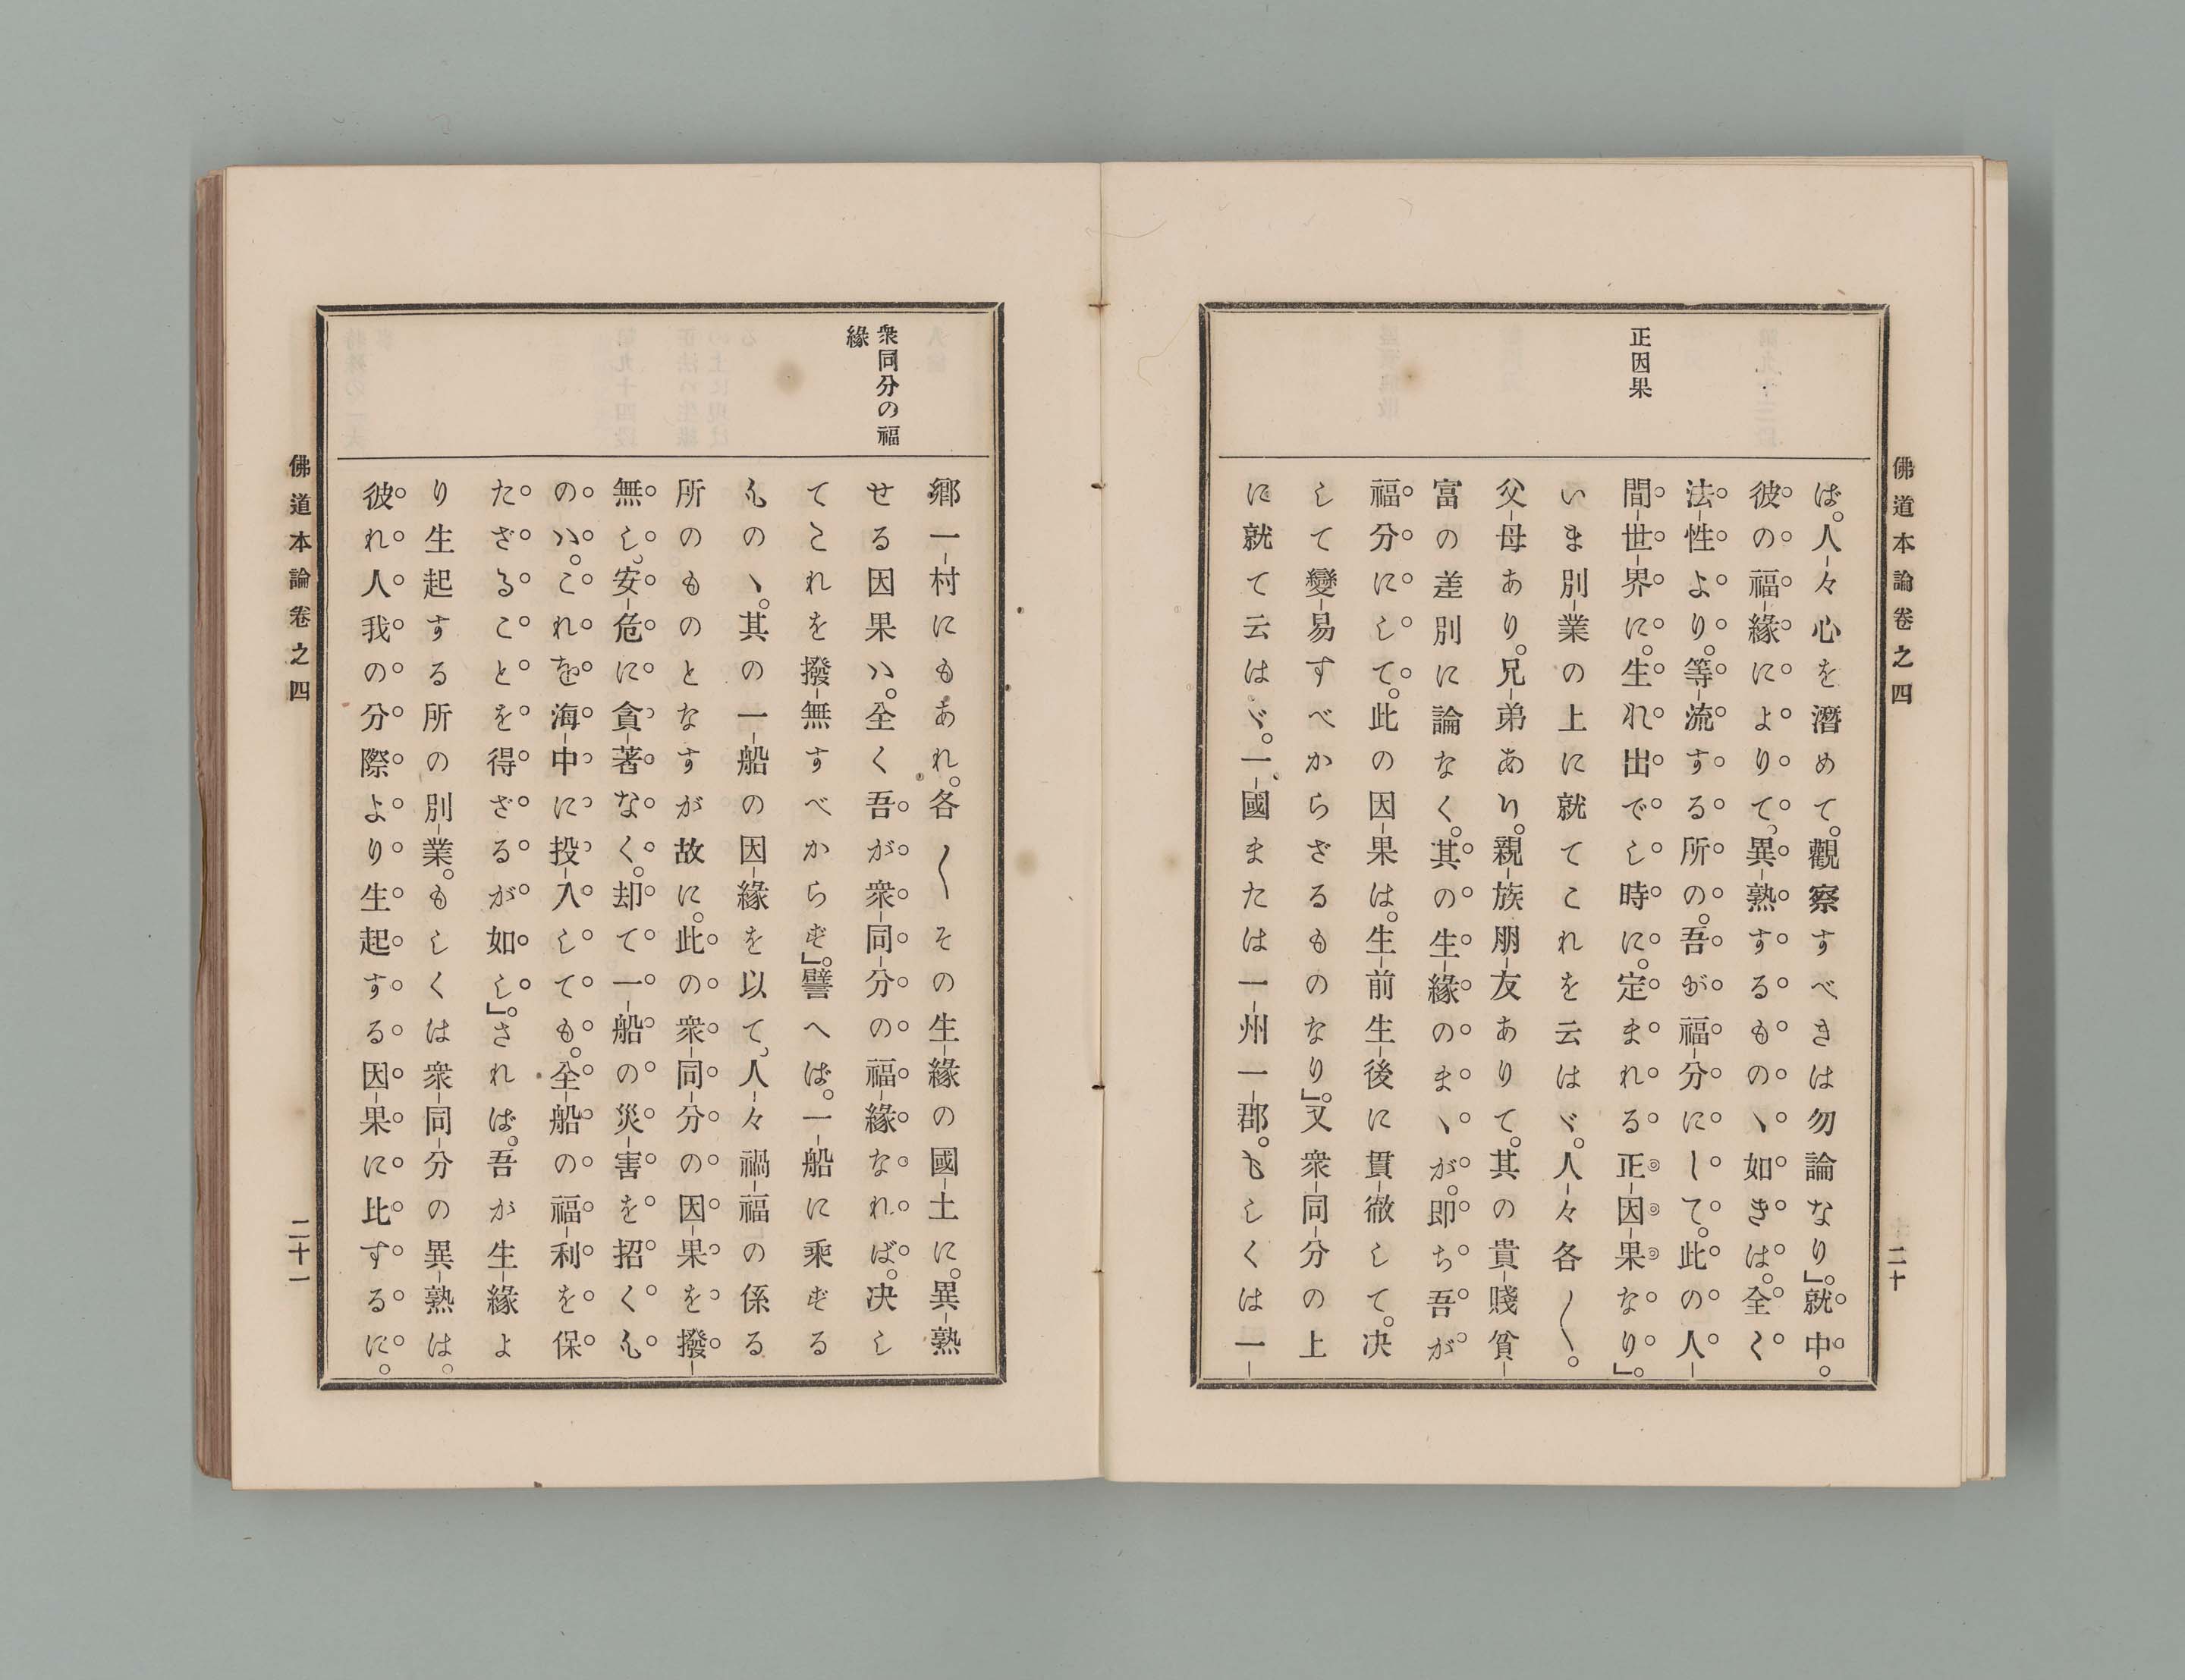 佛道本論卷之四
二十
正因果
ば。人々心を潛めて。觀察すべきは勿論なり」。就中。
彼の福緣によりて、異熟するものゝ如きは。全く
法性より。等流する所の。吾が福分にして。此の人
間世界に。生れ出でし時に。定まれる正因果なり」。
いま別業の上に就てこれを云はゞ。人々各〱。
父母あり。兄弟あり。親族朋友ありて。其の貴賤貧
富の差別に論なく。其の生緣のまゝが。即ち吾が
福分にして。此の因果は。生前生後に貫徹して。决
して變易すべからざるものなり」。又衆同分の上
に就て云はゞ。一國または一州一郡。もしくは一
衆同分の福
緣
鄕一村にもあれ。各〱その生緣の國土に。異熟
せる因果ハ。全く吾が衆同分の福緣なれば。决し
てこれを撥無すべからず」。譬へば。一船に乘ずる
もの丶。其の一船の因緣を以て、人々禍福の係る
所のものとなすが故に。此の衆同分の因果を撥
無し。安危に貪著なく。却て一船の災害を招くも
のハ。これを海中に投入しても。全船の福利を保
たざることを得ざるが如し」。されば。吾が生緣よ
り生起する所の別業。もしくは衆同分の異熟は。
彼れ人我の分際より生起する因果に比するに。
佛道本論卷之四
二十一